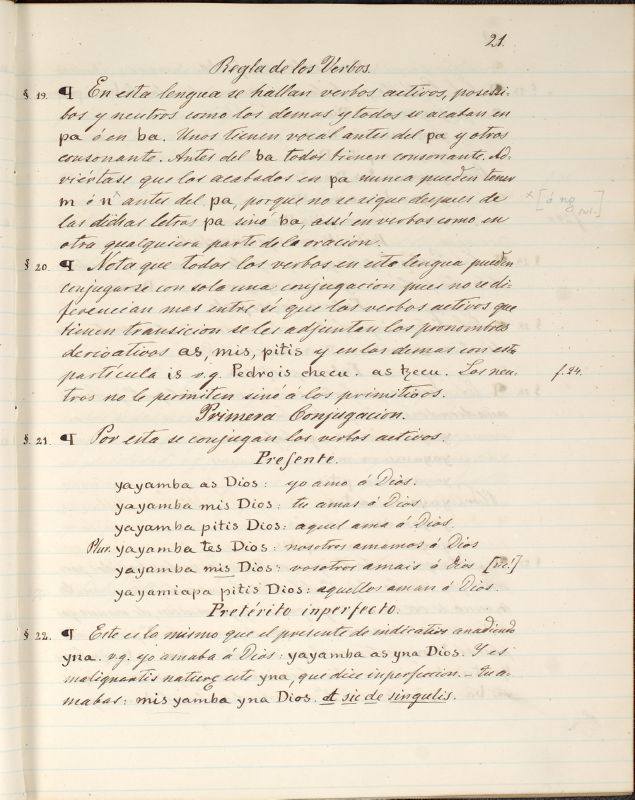 21.
Regla de los Verbos.
§ 19. ¶ En esta lengua se hallan verbos activos, posessi-
bos y neutros como los demas y todos se acaban en
pa ó en ba. Unos tienen vocal antes del pa y otros
consonante. Antes del ba todos tienen consonante. Ad-
viértase que los acabados en pa nunca pueden tener
m ó n^ antes del pa, porque no se sigue despues de × [ó ng
las dichas letras pa sinó ba, assí en verbos como en
otra qualquiera parte de la oracion.
§ 20. ¶ Nota que todos los verbos en esta lengua pueden
conjugarse con sola una conjugacion pues no se di-
ferencian mas entre sí que los verbos activos que
tienen transicion se les adjuntan los pronombres
derivativos as, mis, pitis y en los demas con esta
partícula is v.g. Pedrois checu. as tzecu. Los neu- f. 24.
tros no le permiten sinó á los primitivos.
Primera Conjugacion.
§ 21. ¶ Por esta se conjugan los verbos activos.
Presente.
yayamba as Dios: yo amo á Dios.
yayamba mis Dios: tu amas á Dios
yayamba pitis Dios: aquel ama á Dios.
Plur. yayamba tes Dios: nosotros amamos á Dios
yayamba mis Dios: vosotros amais á Dios [sic!]
yayamiapa pitis Dios: aquellos aman á Dios.
Pretérito inperfecto.
§ 22. ¶ Este es lo mismo que el presente de indicativo anadiendo
yna. v.g. yo amaba á Dios: yayamba as yna Dios. Y es
malignantis naturę este yna, que dice inperfeccion. – Tu a-
meabas: mis yamba yna Dios. et sic de singulis.